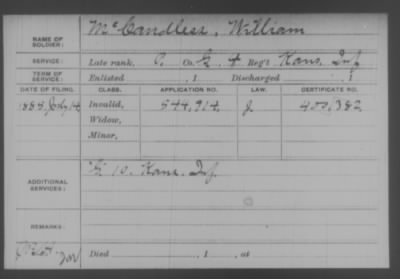 NAME OF SOLDIER: McCandless, William
SERVICE: Late rank, P. Co. G. 4 Reg't Kans. Inf
TERM OF SERVICE: Enlisted , 1 Discharged , 1
DATE OF FILING. CLASS. APPLICATION NO. LAW. CERTIFICATE NO.
1885 July 14 Invalid, 544,914 J. 400,382
Widow,
Minor,
ADDITIONAL SERVICES: G 10. Kans. Inf.
REMARKS:
Died , 1 , at